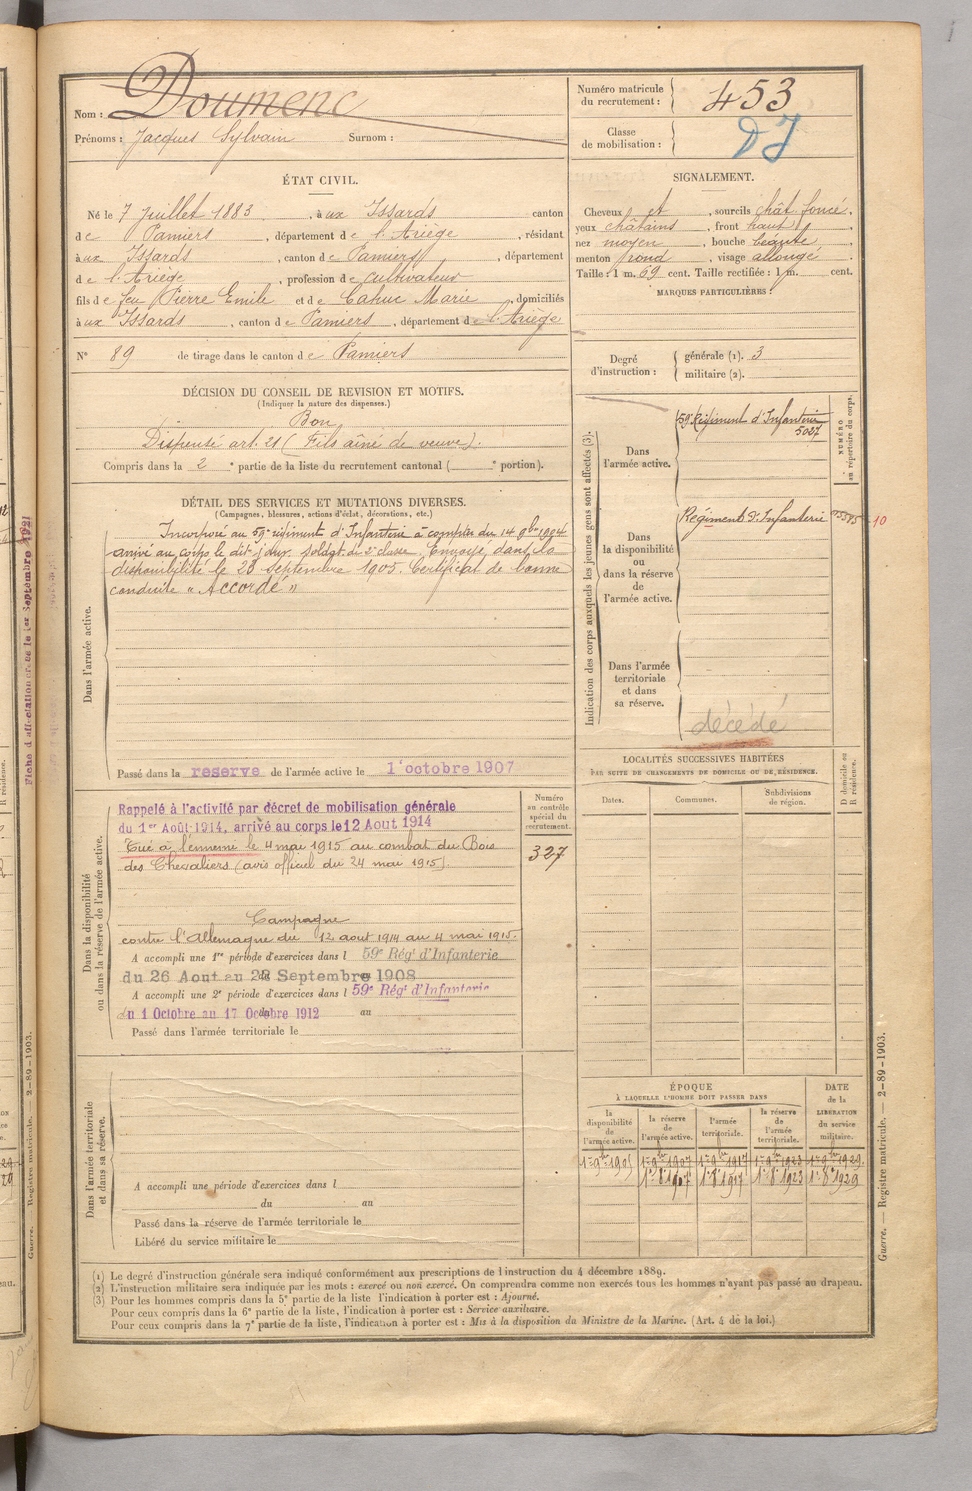 Nom : Doumenc
Prénoms : Jacques Sylvain Surnom :
Numéro matricule
du recrutement : 453
Classe
de mobilisation :
ÉTAT CIVIL.
Né le 7 Juillet 1883, à ux Issards canton
de Pamiers, département de l'Ariège, résidant
à ux Issards, canton de Pamiers, département
de l'Ariège, profession de cultivateur
fils de feu Pierre Emile et de Cahuc Marie, domiciliés
à ux Issards, canton de Pamiers, département de l'Ariège
N° 89 de tirage dans le canton de Pamiers
SIGNALEMENT.
Cheveux et, sourcils chât foncé.
yeux châtains, front haut,
nez moyen, bouche béante,
menton rond, visage allongé.
Taille : 1 m. 69 cent. Taille rectifiée : 1 m. cent.
MARQUES PARTICULIÈRES :
Degré
d'instruction :
générale (1). 3
militaire (2).
DÉCISION DU CONSEIL DE REVISION ET MOTIFS.
(Indiquer la nature des dispenses.)
Bon
Dispensé art. 21 (Fils aîné de veuve).
Compris dans la 2e partie de la liste du recrutement cantonal ( e portion).
DÉTAIL DES SERVICES ET MUTATIONS DIVERSES.
(Campagnes, blessures, actions d'éclat, décorations, etc.)
Dans l'armée active.
Incorporé au 59e régiment d'Infanterie à compter du 14 9bre 1904
arrivé au corps le dit jour. soldat de 2e classe. Envoyé dans la
disponibilité le 23 septembre 1905. Certificat de bonne
conduite « Accordé »
Passé dans la reserve de l'armée active le 1 octobre 1907
Dans la disponibilité
ou dans la réserve de l'armée active.
Rappelé à l'activité par décret de mobilisation générale
du 1er Août 1914, arrivé au corps le 12 Aout 1914
Tué à l'ennemi le 4 mai 1915 au combat du Bois
des Chevaliers (avis officiel du 24 mai 1915).
Campagne
contre l'Allemagne du 12 aout 1914 au 4 mai 1915.
A accompli une 1re période d'exercices dans l 59e Régt d'Infanterie
du 26 Aout au Septembre 1908
A accompli une 2e période d'exercices dans l 59e Régt d'Infanterie
du 1 Octobre au 17 Octobre 1912 au
Passé dans l'armée territoriale le
Numéro
au contrôle
spécial du
recrutement.
327
Dans l'armée territoriale
et dans sa réserve.
A accompli une période d'exercices dans l
du au
Passé dans la réserve de l'armée territoriale le
Libéré du service militaire le
Indication des corps auxquels les jeunes gens sont affectés (3).
NUMÉRO
au répertoire du corps.
Dans
l'armée active.
59e Régiment d'Infanterie
5027
Dans
la disponibilité
ou
dans la réserve
de
l'armée active.
Régiment d'Infanterie
10
Dans l'armée
territoriale
et dans
sa réserve.
décédé
LOCALITÉS SUCCESSIVES HABITÉES
PAR SUITE DE CHANGEMENTS DE DOMICILE OU DE RÉSIDENCE.
Dates.
Communes.
Subdivisions
de région.
D domicile ou
R résidence.
ÉPOQUE
À LAQUELLE L'HOMME DOIT PASSER DANS
la
disponibilité
de
l'armée active.
la réserve
de
l'armée active.
l'armée
territoriale.
la réserve
de
l'armée
territoriale.
DATE
de la
LIBÉRATION
du service
militaire.
1er 9bre 1907 1er 9bre 1917 1er 9bre 1923 1er 9bre 1929
1er 8bre 1907 1er 8bre 1917 1er 8bre 1923 1er 8bre 1929
(1) Le degré d'instruction générale sera indiqué conformément aux prescriptions de l'instruction du 4 décembre 1889.
(2) L'instruction militaire sera indiquée par les mots : exercé ou non exercé. On comprendra comme non exercés tous les hommes n'ayant pas passé au drapeau.
(3) Pour les hommes compris dans la 5e partie de la liste l'indication à porter est : Ajourné.
Pour ceux compris dans la 6e partie de la liste, l'indication à porter est : Service auxiliaire.
Pour ceux compris dans la 7e partie de la liste, l'indication à porter est : Mis à la disposition du Ministre de la Marine. (Art. 4 de la loi.)
Guerre. — Registre matricule. — 2-89-1903.